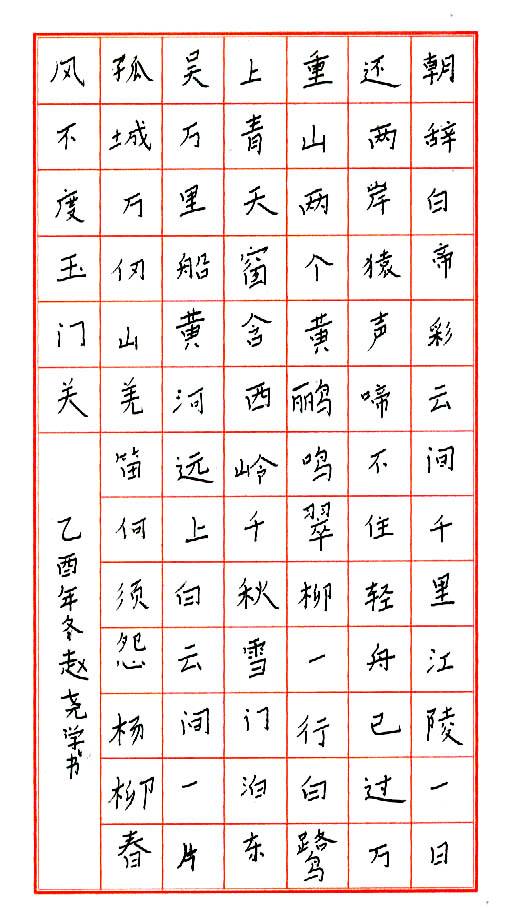 朝辞白帝彩云间千里江陵一日
还两岸猿声啼不住轻舟已过万
重山两个黄鹂鸣翠柳一行白鹭
上青天窗含西岭千秋雪门泊东
吴万里船黄河远上白云间一片
孤城万仞山羌笛何须怨杨柳春
风不度玉门关
乙酉年冬赵尧学书